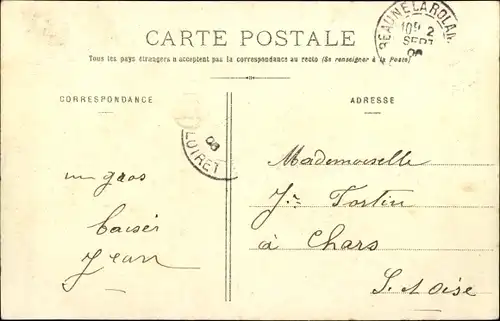 CARTE POSTALE
Tous les pays étrangers n'acceptent pas la correspondance au recto (Se renseigner à la Poste)
CORRESPONDANCE
ADRESSE
BEAUNE LA ROLAN
SEPT
LOIRET
08
un gros
baiser
Jean
Mademoiselle
Jne Fortin
à Chars
S. et Oise